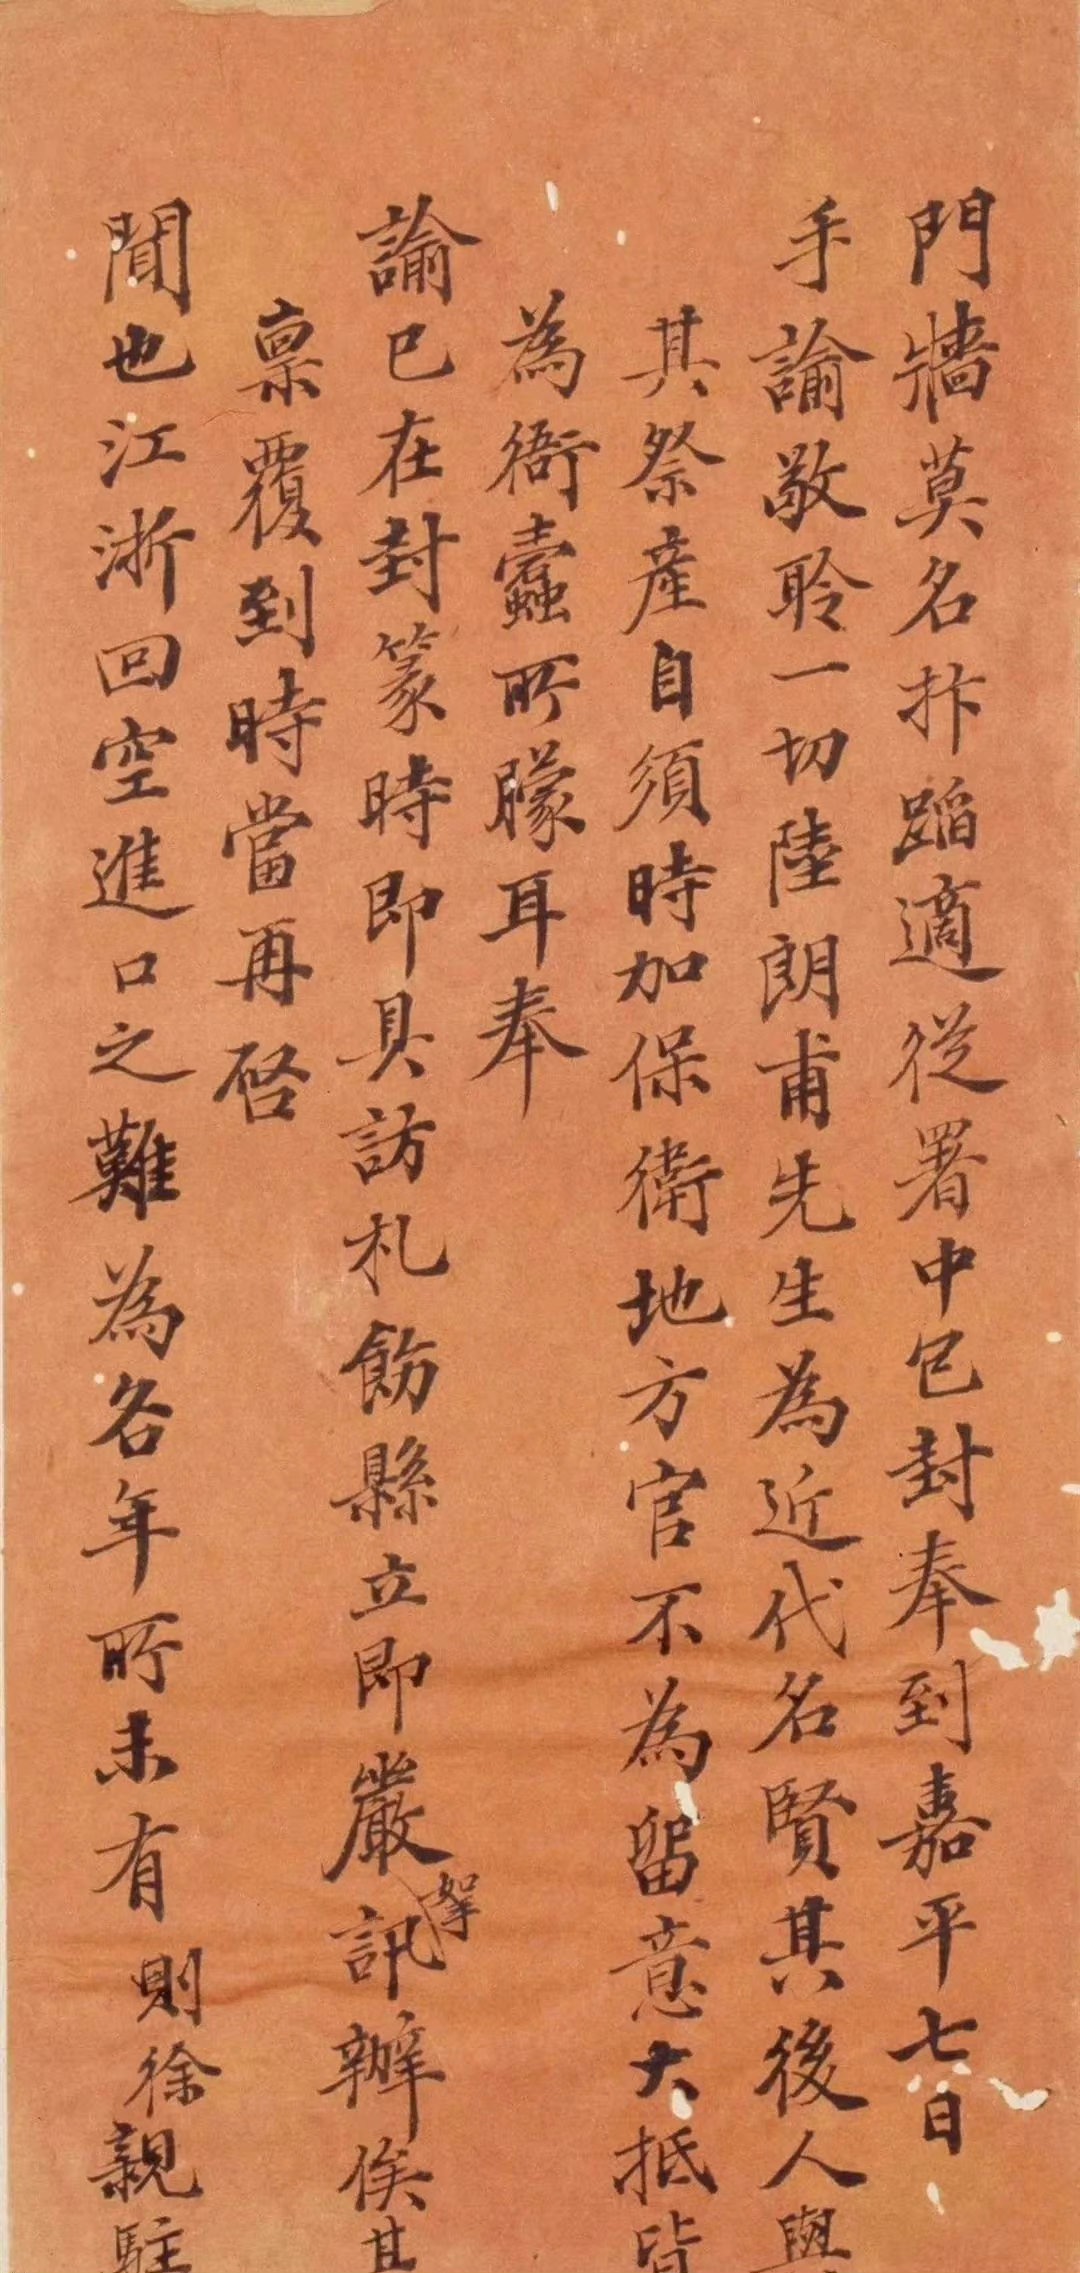 門牆莫名抃蹈適從署中包封奉到嘉平七日
手諭敬聆一切陸朗甫先生為近代名賢其後人與
其祭產自須時加保衛地方官不為留意大抵皆
為衙蠹所矇耳奉
諭已在封篆時即具訪札飭縣立即嚴拏訊辦俟其
稟覆到時當再啓
聞也江浙回空進口之難為各年所未有則徐親駐